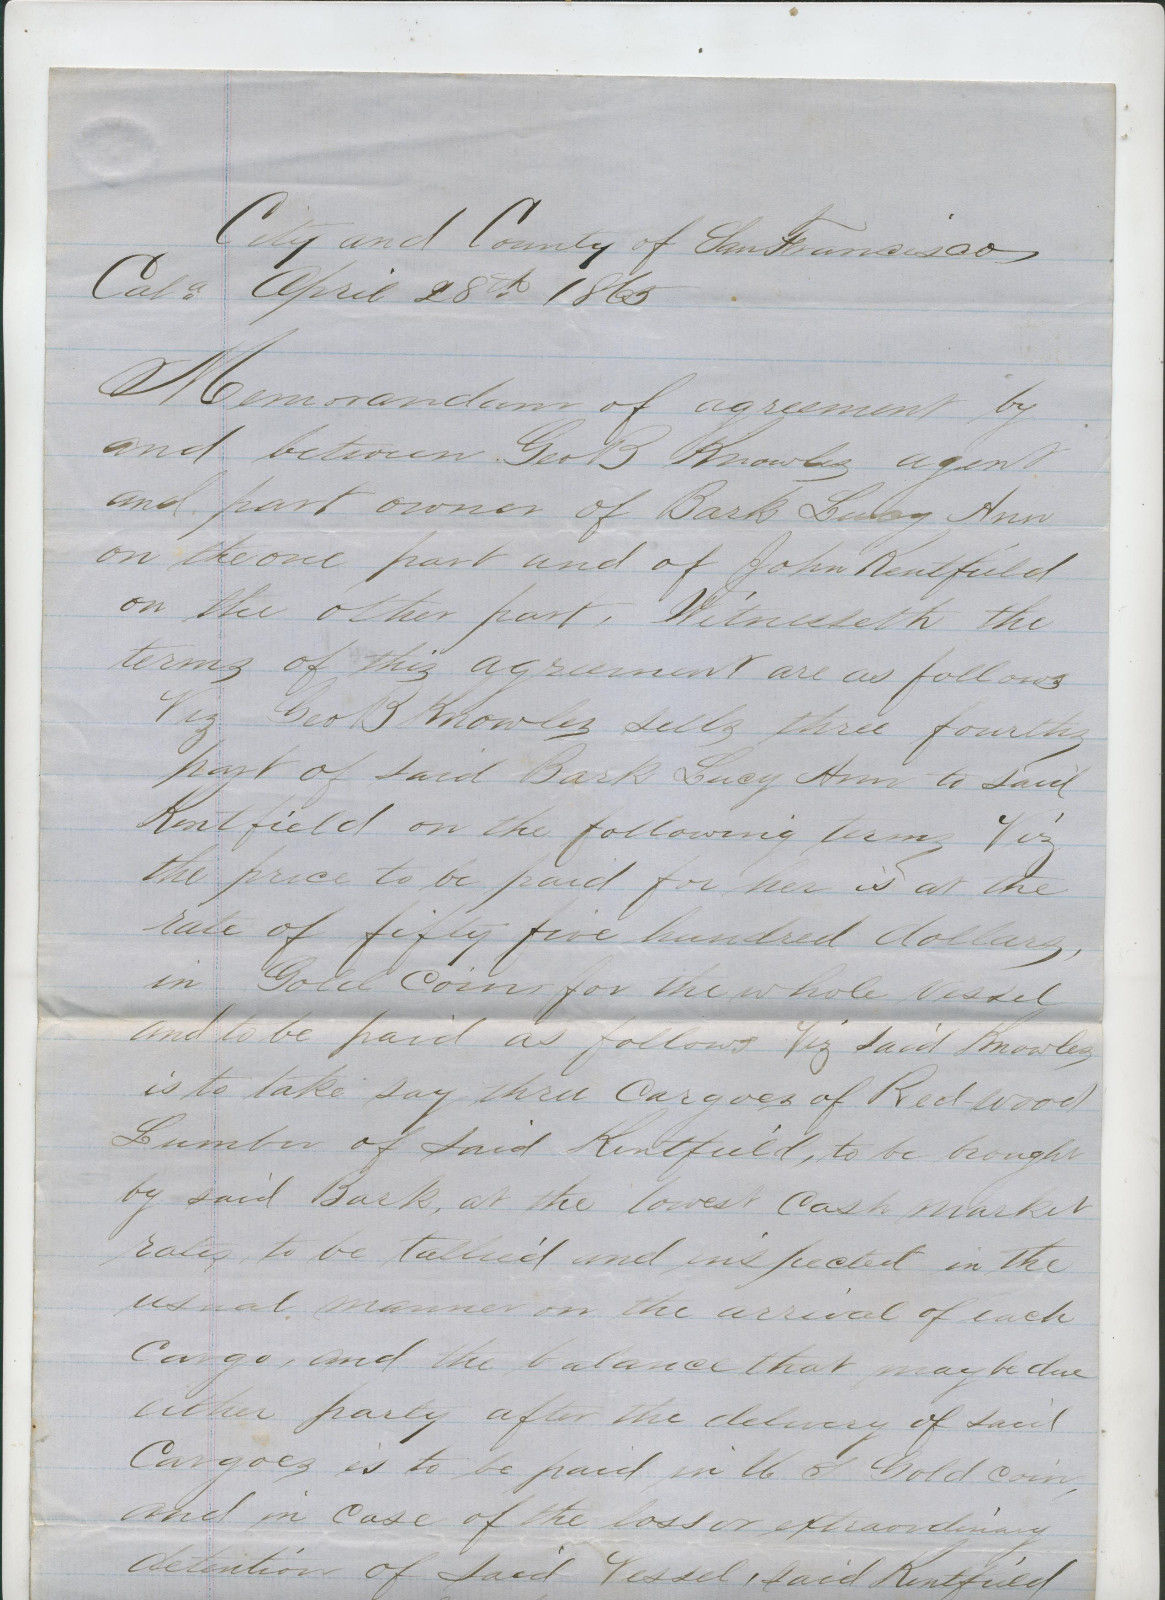 City and County of San Francisco,
Cala April 28th 1865
Memorandum of agreement by
and between Geo B Knowles agent
and part owner of Bark Lucy Ann
on the one part and of John Kentfield
on the other part, Witnesseth the
terms of this agreement are as follows
Viz Geo B Knowles sells three fourths
part of said Bark Lucy Ann to said
Kentfield on the following terms Viz
the price to be paid for her is at the
rate of fifty five hundred dollars,
in Gold Coin, for the whole Vessel
and to be paid as follows Viz said Knowles
is to take say three Cargoes of Red-wood
Lumber of said Kentfield, to be brought
by said Bark, at the lowest Cash market
rates, to be tallied and inspected in the
usual manner on the arrival of each
Cargo, and the balance that may be due
either party after the delivery of said
Cargoes is to be paid in U S Gold coin,
and in case of the loss or extraordinary
detention of said Vessel, said Kentfield